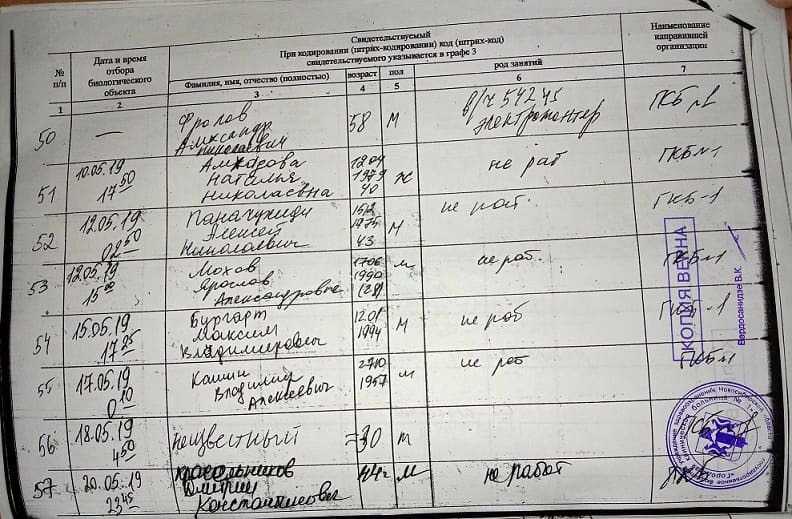 № п/п
Дата и время отбора биологического объекта
Свидетельствуемый
При кодировании (штрих-кодировании) код (штрих-код) свидетельствуемого указывается в графе 3
Наименование направившей организации
Фамилия, имя, отчество (полностью)
возраст
пол
род занятий
1 2 3 4 5 6 7
50 — Фролов 58 М в/ч 54245 ГКБ №1
Александр электромонтер
Николаевич
51 10.05.19 1204 ж не раб ГКБ №1
17 50 Наталья 1979
Николаевна 40
52 12.05.19 М не раб. ГКБ-1
02 50 Алексей 1975
Николаевич 43
53 12.05.19 Мохов 1706 м не раб. ГКБ №1
15 00 Ярослав 1990
Александрович (28)
54 15.05.19 Бургарт 1201 М не раб ГКБ-1
17 25 Максим 1994
Владимирович
55 17.05.19 2710 м не раб ГКБ №1
0 10 Владимир 1957
Алексеевич
56 18.05.19 Неизвестный ≈30 m
4 50
57 20.05.19 Красильников 44г М не работ ГКБ
23 45 Дмитрий
Константинович
КОПИЯ ВЕРНА
Вардосанидзе В.К.